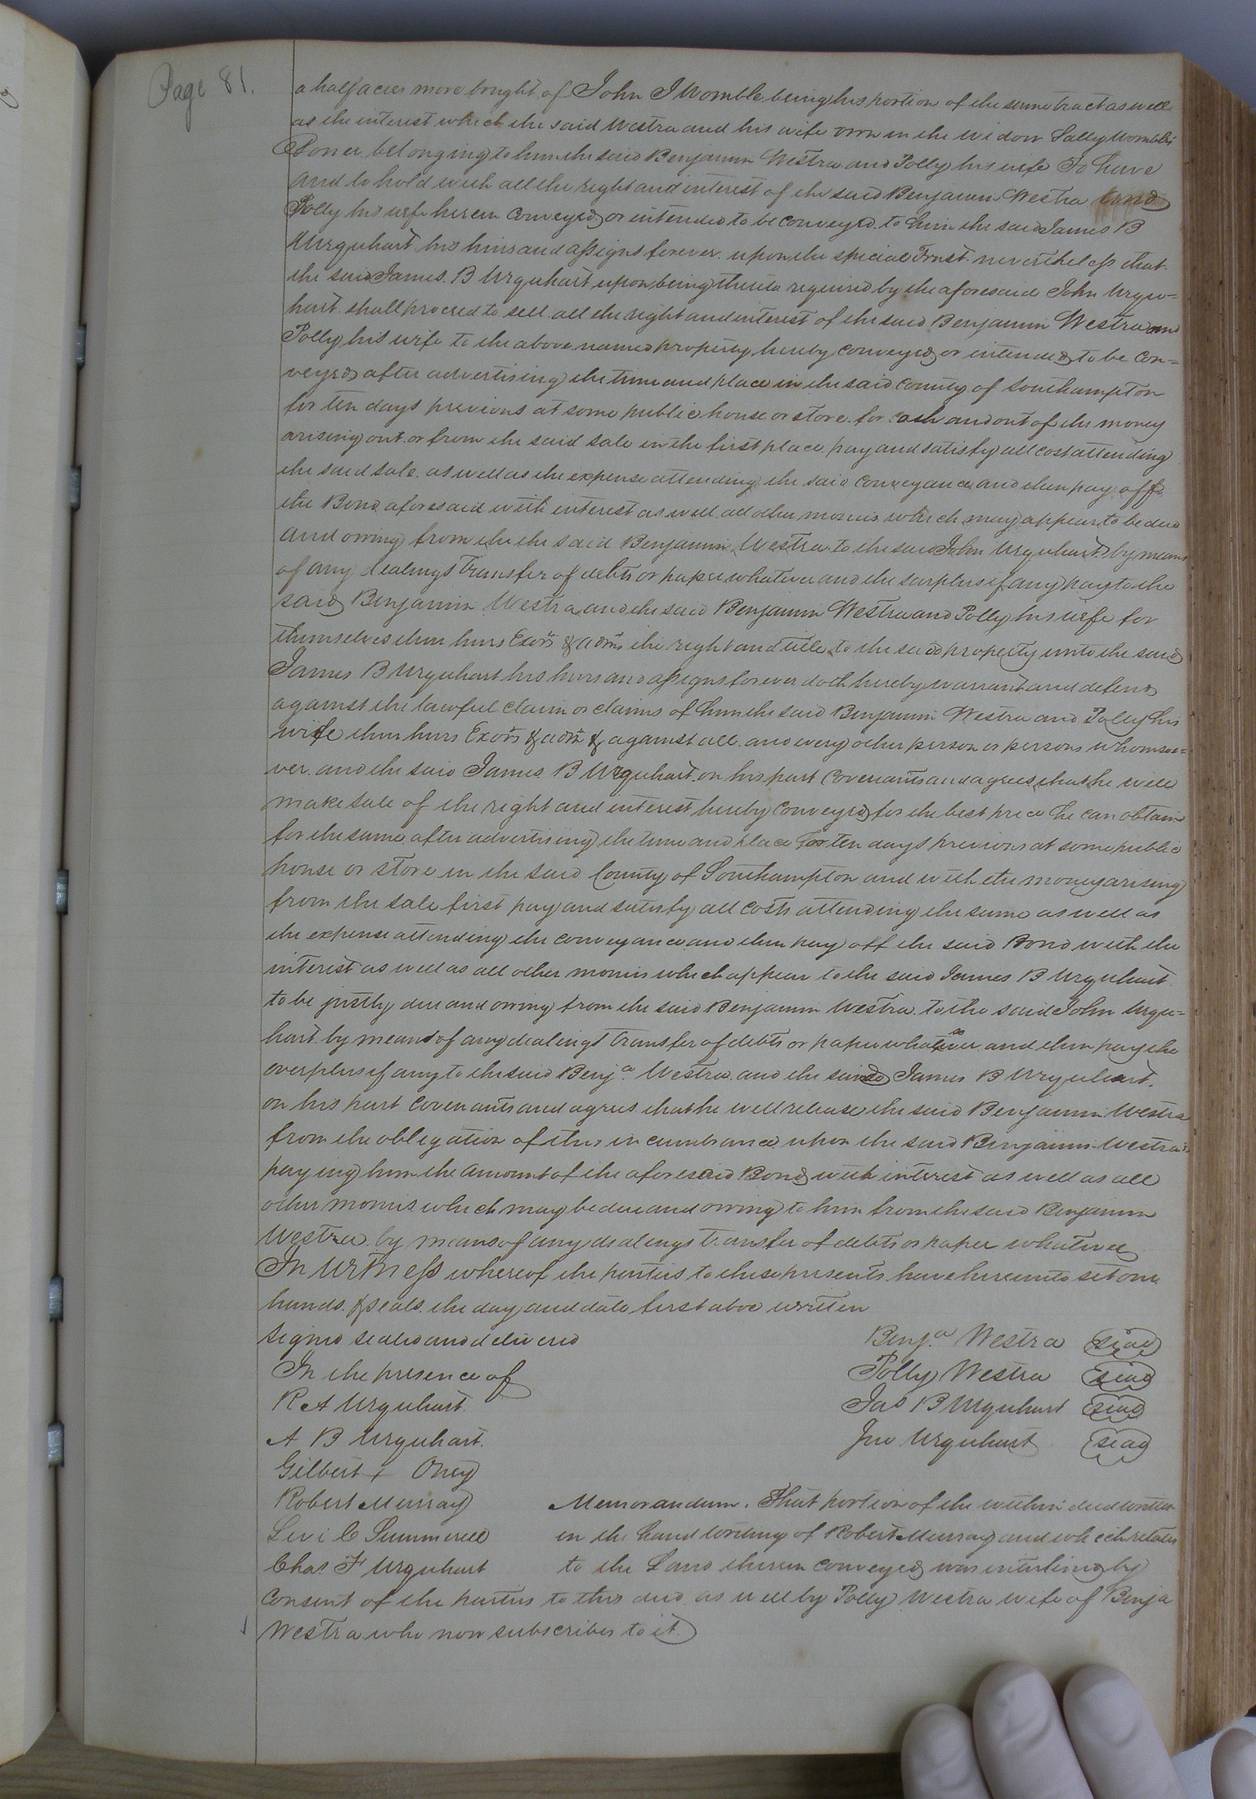 Page 81.
a half acres more bought of John J Womble being his portion of the same tract as well
as the interest which the said Westra and his wife own in the widow Sally Womble's
Dower belonging to him the said Benjamin Westra and Polly his wife To have
and to hold with all the right and interest of the said Benjamin Westra and
Polly his wife herein conveyed or intended to be conveyed to him the said James B
Urquhart his heirs and assigns forever upon the special Trust nevertheless that
the said James B Urquhart upon being thereto required by the aforesaid John Urqu=
hart shall proceed to sell all the right and interest of the said Benjamin Westra and
Polly his wife to the above named property hereby conveyed or intended to be con=
veyed after advertising the time and place in the said county of Southampton
for ten days previous at some public house or store for cash and out of the money
arising out or from the said sale in the first place pay and satisfy all cost attending
the said sale as well as the expense attending the said conveyance and then pay off
the Bond aforesaid with interest as well all other monies which may appear to be due
and owing from the the said Benjamin Westra to the said John Urquhart by means
of any dealings transfer of debts or paper whatever and the surplus if any pay to the
said Benjamin Westra and the said Benjamin Westra and Polly his wife for
themselves their heirs Exors & adms the right and title to the said property unto the said
James B Urquhart his heirs and assigns forever doth hereby warrant and defend
against the lawful claim or claims of him the said Benjamin Westra and Polly his
wife their heirs Exors & adm & against all and every other person or persons whomsoe=
ver and the said James B Urquhart on his part Covenants and agrees that he will
make sale of the right and interest hereby conveyed for the best price he can obtain
for the same after advertising the time and place for ten days previous at some public
house or store in the said County of Southampton and with the money arising
from the sale first pay and satisfy all costs attending the same as well as
the expense attending the conveyance and then pay off the said Bond with the
interest as well as all other monies which appear to the said James B Urquhart
to be justly due and owing from the said Benjamin Westra to the said John Urqu=
hart by means of any dealings transfer of debts or paper whatever and then pay the
overplus if any to the said Benja Westra and the said James B Urquhart
on his part Covenants and agrees that he will release the said Benjamin Westra
from the obligation of this incumbrance upon the said Benjamin Westra's
paying him the amount of the aforesaid Bond with interest as well as all
other monies which may be due and owing to him from the said Benjamin
Westra by means of any dealings transfer of debts or paper whatever
In Witness whereof the parties to these presents have hereunto set our
hands & seals the day and date first above written
Signed sealed and delivered Benja Westra seal
In the presence of Polly Westra seal
R A Urquhart Jas B Urquhart seal
A B Urquhart Jno Urquhart seal
Gilbert + Oney
Robert Murray Memorandum. That portion of the within deed written
Levi C Summerell in the hand writing of Robert Murray and which relates
Chas F Urquhart to the Land therein conveyed was interlined by
consent of the parties to this deed as well by Polly Westra wife of Benja
Westra who now subscribes to it